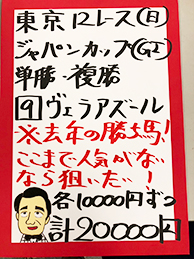 東京12レース(日)
ジャパンカップ(GI)
単勝・複勝
9ヴェラアズール
※去年の勝ち馬!
ここまで人気がない
なら狙いたい!
各10000円ずつ
計20000円